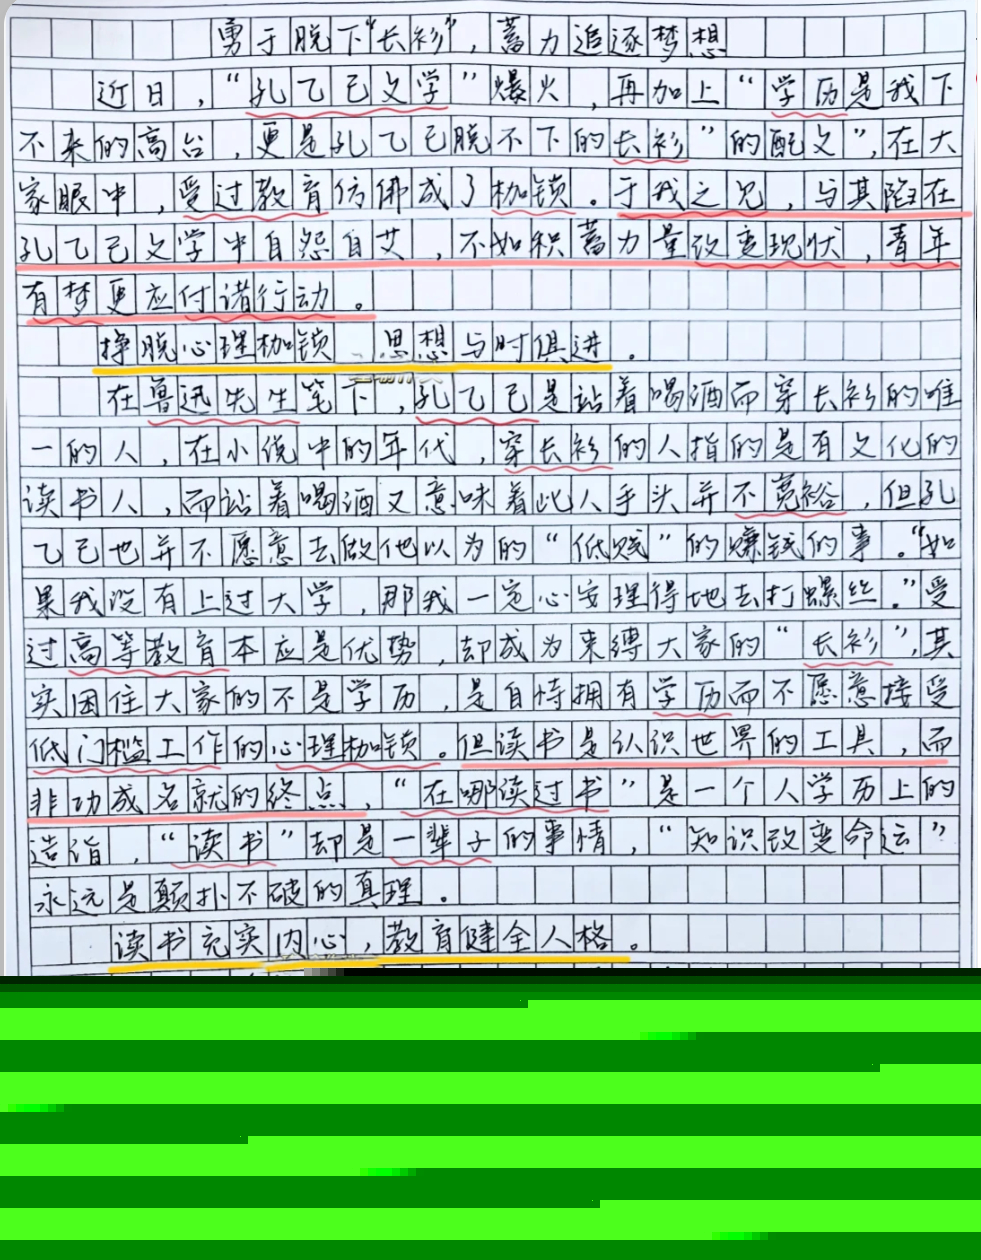 勇于脱下“长衫”，蓄力追逐梦想
近日，“孔乙己文学”爆火，再加上“学历是我下
不来的高台，更是孔乙己脱不下的长衫”的配文”，在大
家眼中，受过教育仿佛成了枷锁。于我之见，与其陷在
孔乙己文学中自怨自艾，不如积蓄力量改变现状，青年
有梦更应付诸行动。
挣脱心理枷锁 思想与时俱进。
在鲁迅先生笔下，孔乙己是站着喝酒而穿长衫的唯
一的人，在小说中的年代，穿长衫的人指的是有文化的
读书人，而站着喝酒又意味着此人手头并不宽裕，但孔
乙己也并不愿意去做他以为的“低贱”的赚钱的事。“如
果我没有上过大学，那我一定心安理得地去打螺丝。”受
过高等教育本应是优势，却成为束缚大家的“长衫”，其
实困住大家的不是学历，是自恃拥有学历而不愿意接受
低门槛工作的心理枷锁。但读书是认识世界的工具，而
非功成名就的终点，“在哪读过书”是一个人学历上的
造诣，“读书”却是一辈子的事情，“知识改变命运”
永远是颠扑不破的真理。
读书充实内心，教育健全人格。